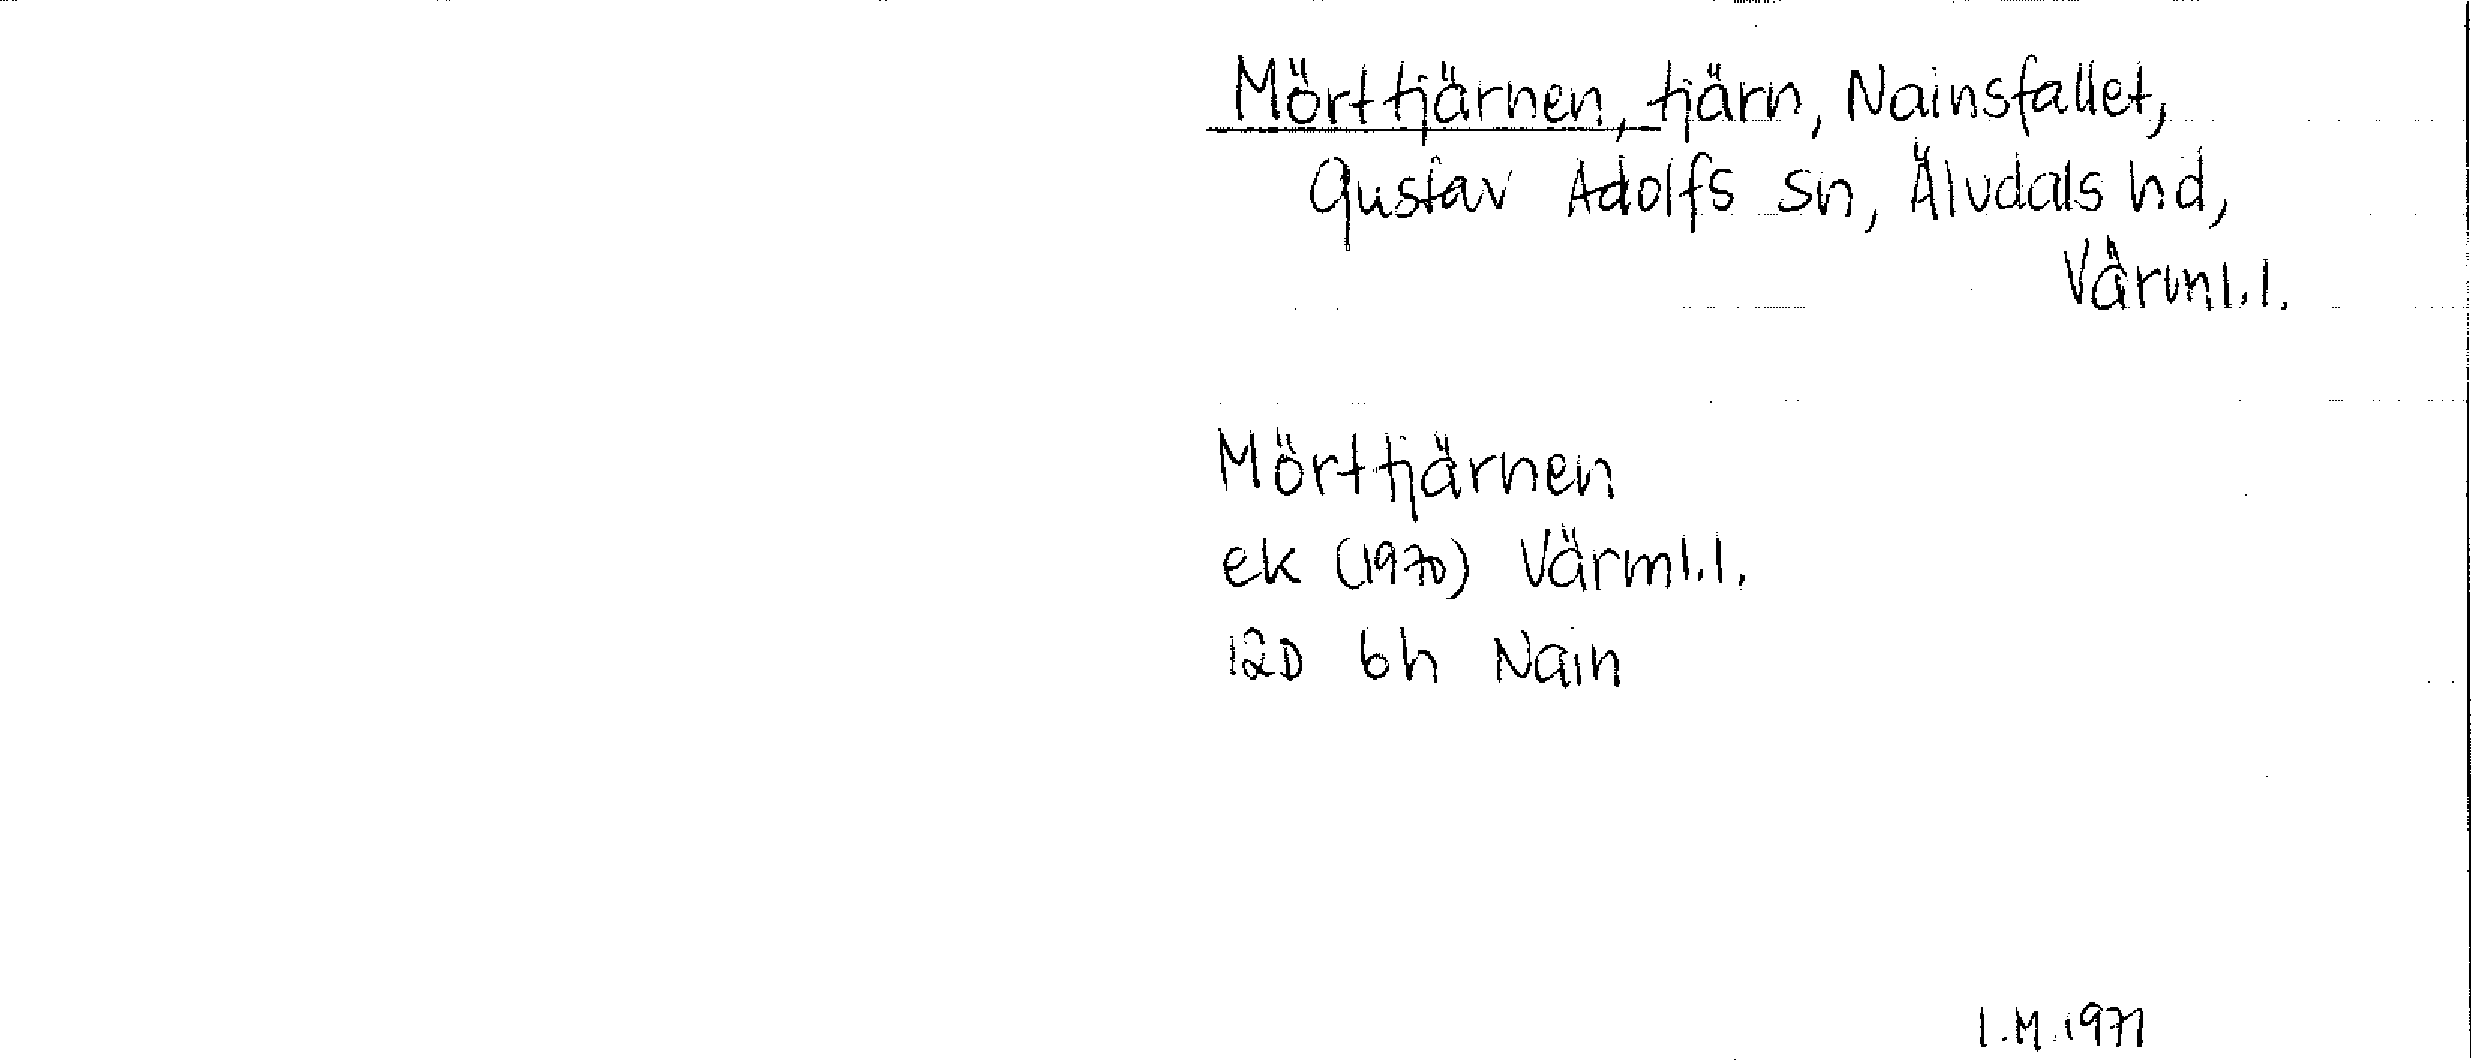 Mörttjärnen, tjärn, Nainsfallet,
Gustav Adolfs sn, Älvdals hd,
Värml.l.
Mörttjärnen
ek (1970) Värml.l.
12D 6h Nain
I.M.1971